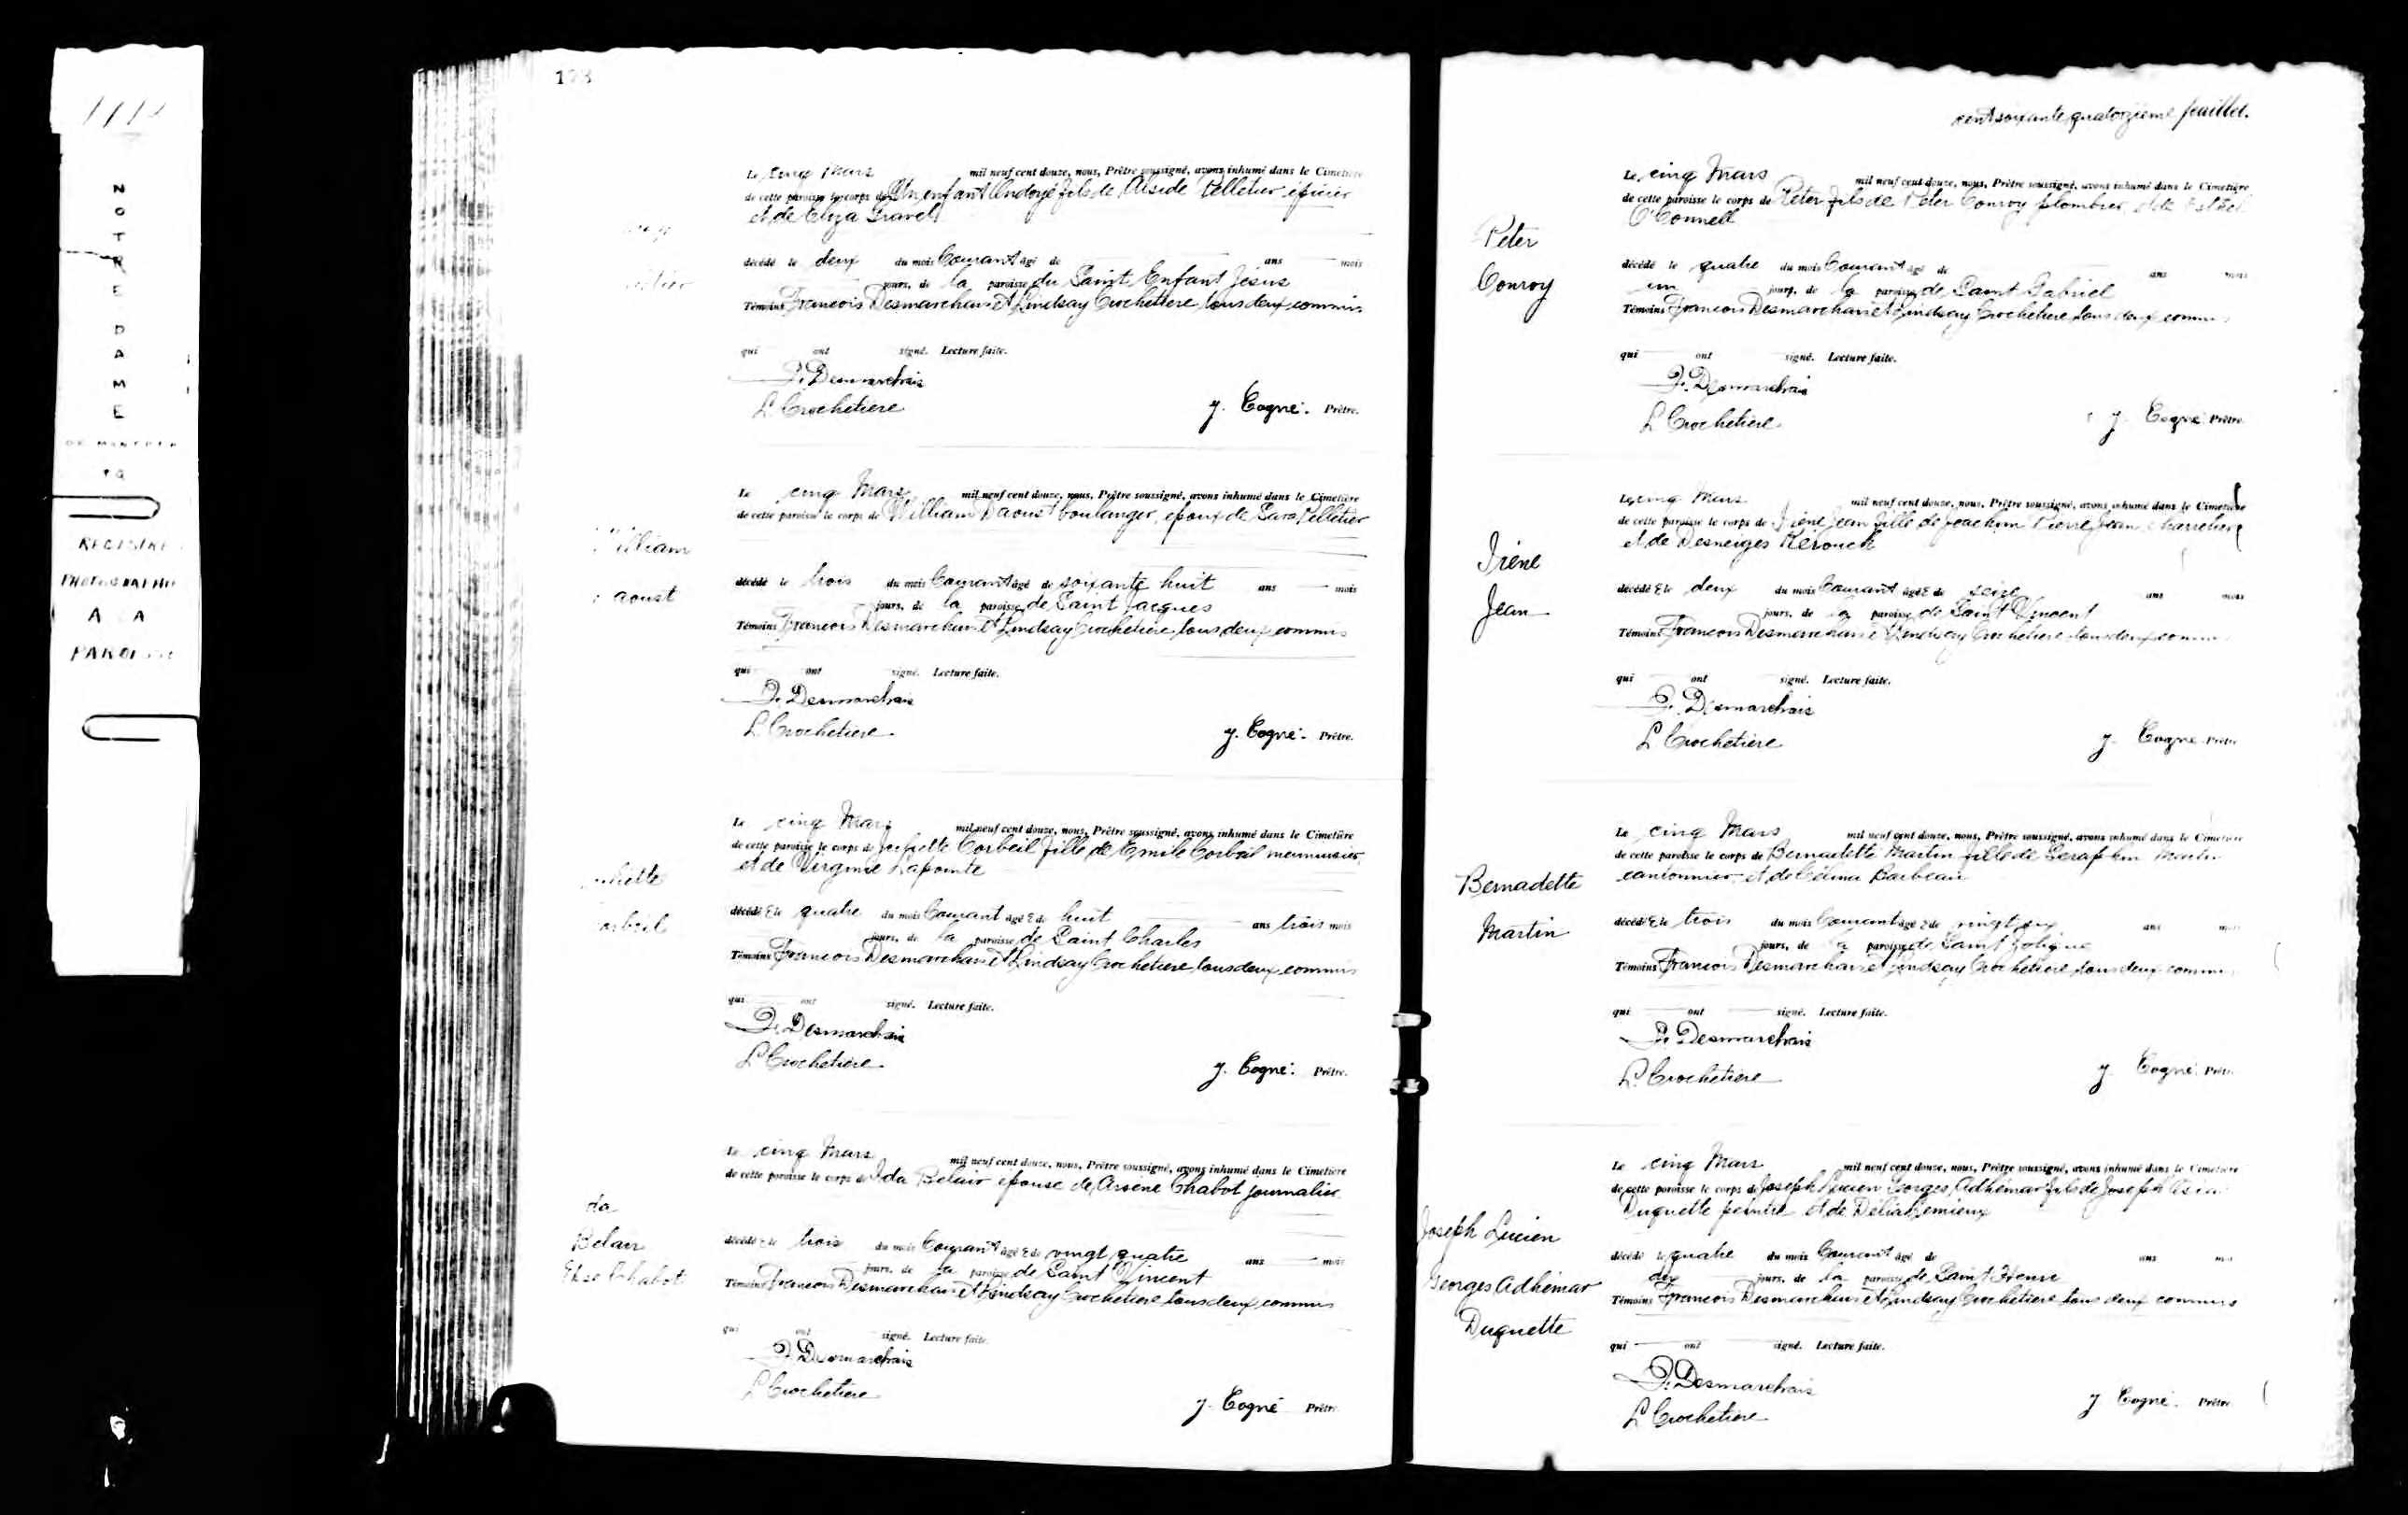 1912
NOTRE DAME
REGISTRE
A LA
173
Le cinq Mars mil neuf cent douze, nous, Prêtre soussigné, avons inhumé dans le Cimetière
de cette paroisse le corps de Un enfant Ondoyé fils de Alside Pelletier épicier
et de Eliza Gravel
décédé le deux du mois Courant âgé de ans mois
jours, de la paroisse du Saint Enfant Jésus
Témoins Francois Desmarchais et Lindsay Crochetiere tous deux commis
qui ont signé. Lecture faite.
F. Desmarchais
L Crochetiere
J. Cogné. Prêtre.
William
aoust
Le cinq Mars mil neuf cent douze, nous, Prêtre soussigné, avons inhumé dans le Cimetière
de cette paroisse le corps de William Daoust boulanger, epoux de Sara Pelletier
décédé le trois du mois Courant âgé de soixante huit ans mois
jours, de la paroisse de Saint Jacques
Témoins Francois Desmarchais et Lindsay Crochetiere tous deux commis
qui ont signé. Lecture faite.
F. Desmarchais
L Crochetiere
J. Cogné. Prêtre.
Le cinq Mars mil neuf cent douze, nous, Prêtre soussigné, avons inhumé dans le Cimetière
de cette paroisse le corps de Corbeil fille de Emile Corbeil menuisier
et de Virginie Lapointe
décédé E le quatre du mois Courant âgé E de huit ans trois mois
jours, de la paroisse de Saint Charles
Témoins Francois Desmarchais et Lindsay Crochetiere tous deux commis
qui ont signé. Lecture faite.
F. Desmarchais
L Crochetiere
J. Cogné. Prêtre.
da
Belair
Epse Chabot
Le cinq Mars mil neuf cent douze, nous, Prêtre soussigné, avons inhumé dans le Cimetière
de cette paroisse le corps de Ida Belair epouse de Arsène Chabot journalier
décédé E le trois du mois Courant âgé E de vingt quatre ans mois
jours, de la paroisse de Saint Vincent
Témoins Francois Desmarchais et Lindsay Crochetiere tous deux commis
qui ont signé. Lecture faite.
F. Desmarchais
L Crochetiere
J. Cogné Prêtre
cent soixante quatorzieme feuillet.
Peter
Conroy
Le cinq Mars mil neuf cent douze, nous, Prêtre soussigné, avons inhumé dans le Cimetière
de cette paroisse le corps de Peter fils de Peter Conroy plombier et de
O'Connell
décédé le quatre du mois Courant âgé de ans mois
un jours, de la paroisse de Saint Gabriel
Témoins Francois Desmarchais et Lindsay Crochetiere tous deux commis
qui ont signé. Lecture faite.
F. Desmarchais
L Crochetiere
J. Cogné Prêtre
Irène
Jean
Le cinq Mars mil neuf cent douze, nous, Prêtre soussigné, avons inhumé dans le Cimetière
de cette paroisse le corps de Irène Jean fille de Joachim Pierre Jean charretier
et de Desneiges Kerouck
décédé E le deux du mois Courant âgé E de seize ans mois
jours, de la paroisse de Saint Vincent
Témoins Francois Desmarchais et Lindsay Crochetiere tous deux commis
qui ont signé. Lecture faite.
F. Desmarchais
L Crochetiere
J. Cogné Prêtre
Bernadette
Martin
Le cinq Mars mil neuf cent douze, nous, Prêtre soussigné, avons inhumé dans le Cimetière
de cette paroisse le corps de Bernadette Martin fille de Seraphin Martin
cantonnier et de Célina Barbeau
décédé E le trois du mois Courant âgé E de vingt ans
jours, de la paroisse de Saint Zotique
Témoins Francois Desmarchais et Lindsay Crochetiere tous deux commis
qui ont signé. Lecture faite.
F. Desmarchais
L. Crochetiere
J. Cogné Prêtre
Joseph Lucien
Georges Adhémar
Duquette
Le cinq Mars mil neuf cent douze, nous, Prêtre soussigné, avons inhumé dans le Cimetière
de cette paroisse le corps de Joseph Lucien Georges Adhémar fils de Joseph
Duquette peintre et de Délia Lemieux
décédé le quatre du mois Courant âgé de ans mois
dix jours, de la paroisse de Saint Henri
Témoins Francois Desmarchais et Lindsay Crochetiere tous deux commis
qui ont signé. Lecture faite.
F. Desmarchais
L Crochetiere
J Cogné. Prêtre